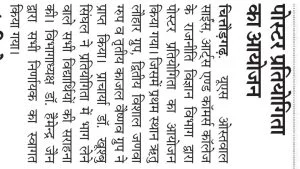 पोस्टर प्रतियोगिता
का आयोजन
चित्तौड़गढ़. यूएस ओस्तवाल
साइंस, आर्ट्स एण्ड कॉमर्स कॉलेज
के राजनीति विज्ञान विभाग द्वारा
पोस्टर प्रतियोगिता का आयोजन
किया गया। जिसमें प्रथम स्थान ऋतु
लौहार ग्रुप, द्वितीय विशाल जणवा
रूप व तृतीय काजल वैष्णव ग्रुप ने
प्राप्त किया। प्राचार्या डॉ. खुश्बु
सिंघल ने प्रतियोगिता में भाग लेने
वाले सभी विद्यार्थियों की सराहना
की। विभागाध्यक्ष डॉ. हेमेन्द्र जैन
द्वारा सभी निर्णायक का स्वागत
किया गया।